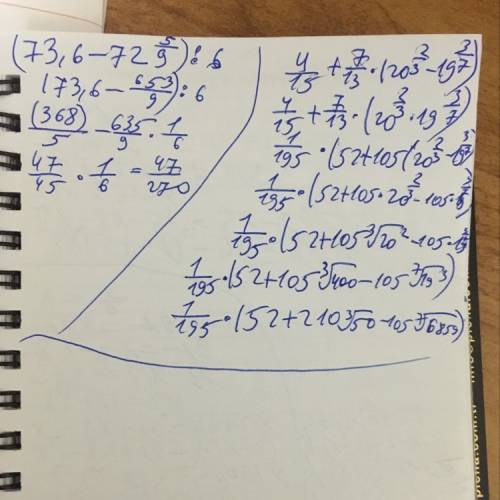 (73,6-72 5/9):6
(73,6-653/9):6
(368)/5-635/9·1/6
47/45·1/6=47/270
4/15+7/13·(20^2/3-19^3/7)
4/15+7/13·(20^2/3·19^3/7)
1/195·(52+105(20^2/3-19^3/7
1/195·(52+105·20^2/3-105·
1/195·(52+105∛20²-105·19
1/195·(52+105∛400-105⁷√19³)
1/195·(52+210∛50-105⁷√6859)